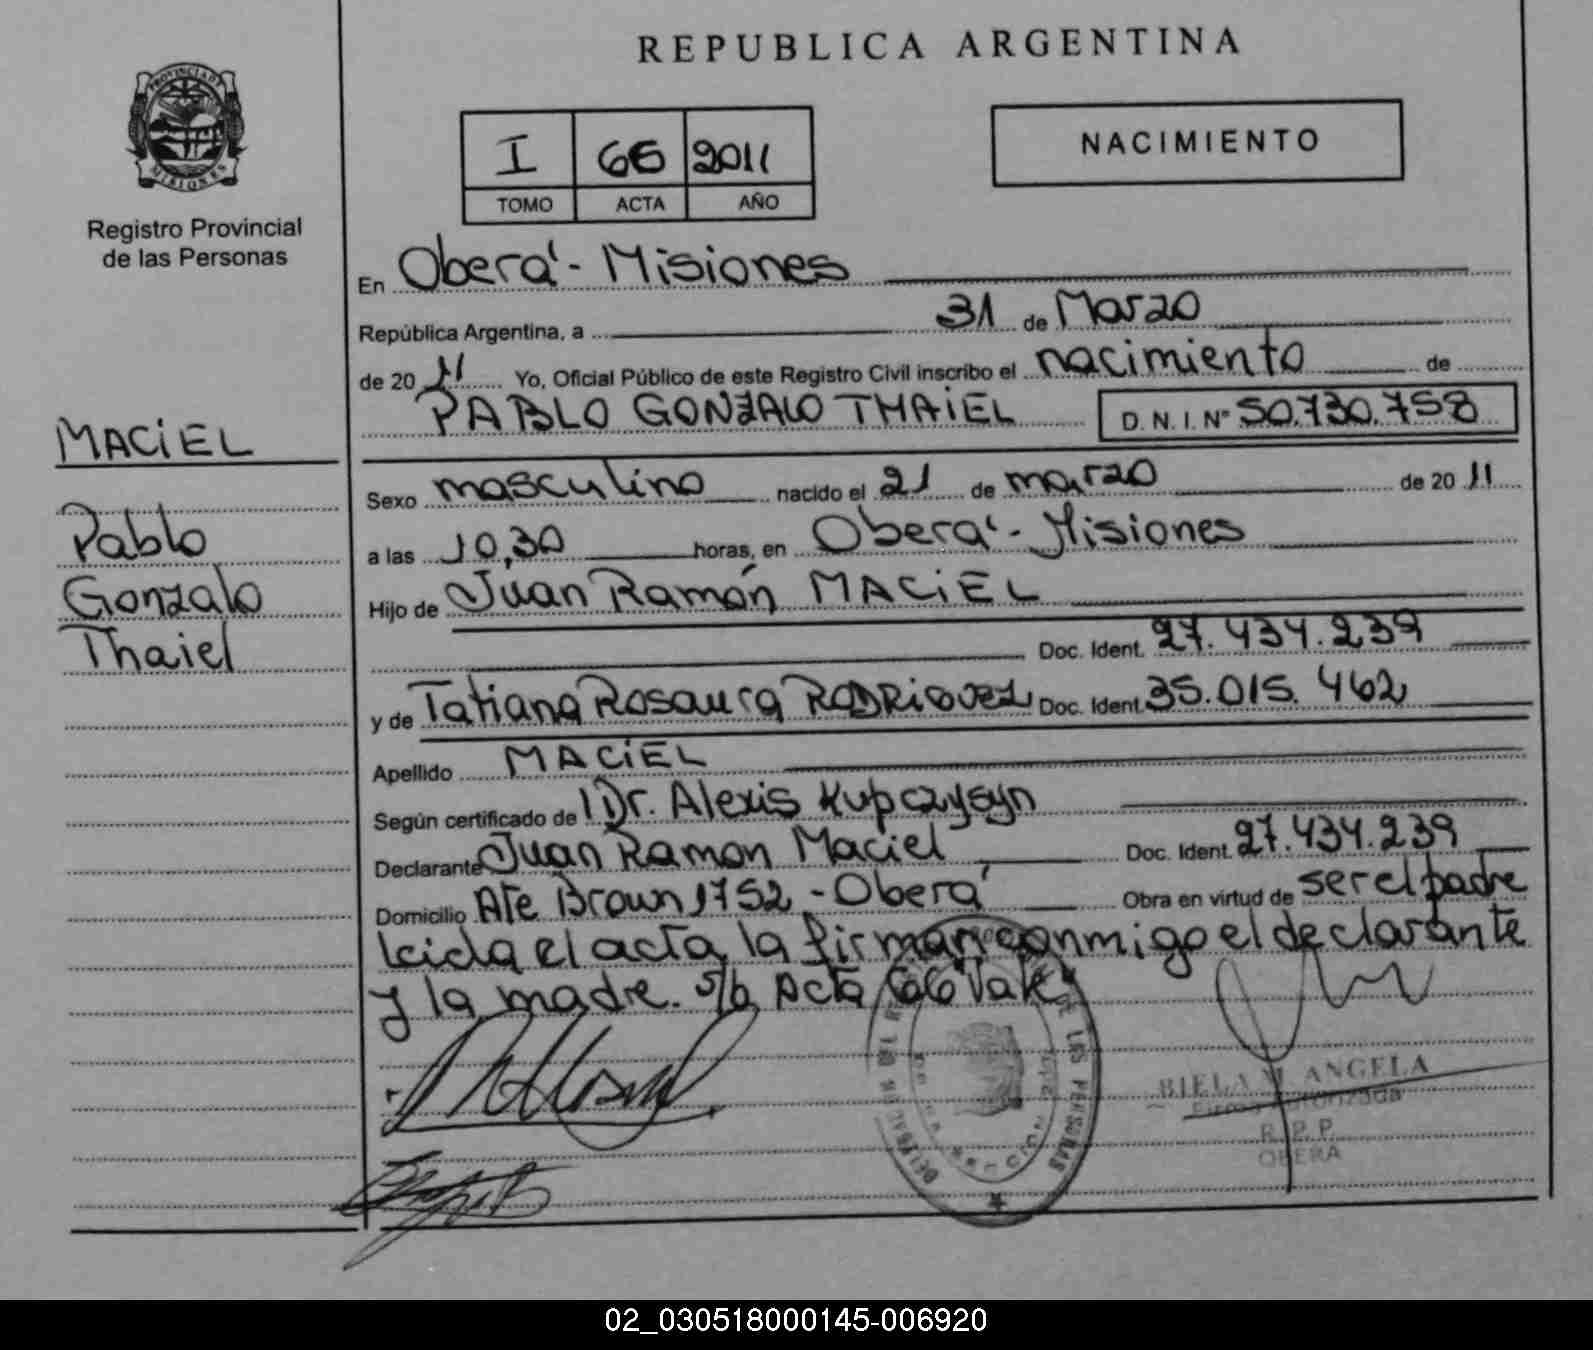 REPUBLICA ARGENTINA
PROVINCIA DE
MISIONES
Registro Provincial
de las Personas
I 66 2011
TOMO ACTA AÑO
NACIMIENTO
En Oberá - Misiones
República Argentina, a 31 de Marzo
de 20 11 Yo, Oficial Público de este Registro Civil inscribo el nacimiento de
PABLO GONZALO THAiEL D. N. I. N° 50.730.758
MACiEL
Pablo
Gonzalo
Thaiel
Sexo masculino nacido el 21 de marzo de 20 11
a las 10,30 horas, en Oberá - Misiones
Hijo de Juan Ramón MACiEL
Doc. Ident. 27.434.239
y de Tatiana Rosaura RODRiGUEZ Doc. Ident. 35.015.462
Apellido MACiEL
Según certificado de Dr. Alexis Kupczysyn
Declarante Juan Ramon Maciel Doc. Ident. 27.434.239
Domicilio Ate Brown 1752 - Oberá Obra en virtud de ser el padre
Leida el acta, la firman conmigo el declarante
y la madre. s/b Acta 66 Vale
DE LAS PERSONAS
BIELA M. ANGELA
Firma Autorizada
R. P. P.
OBERA
02_030518000145-006920